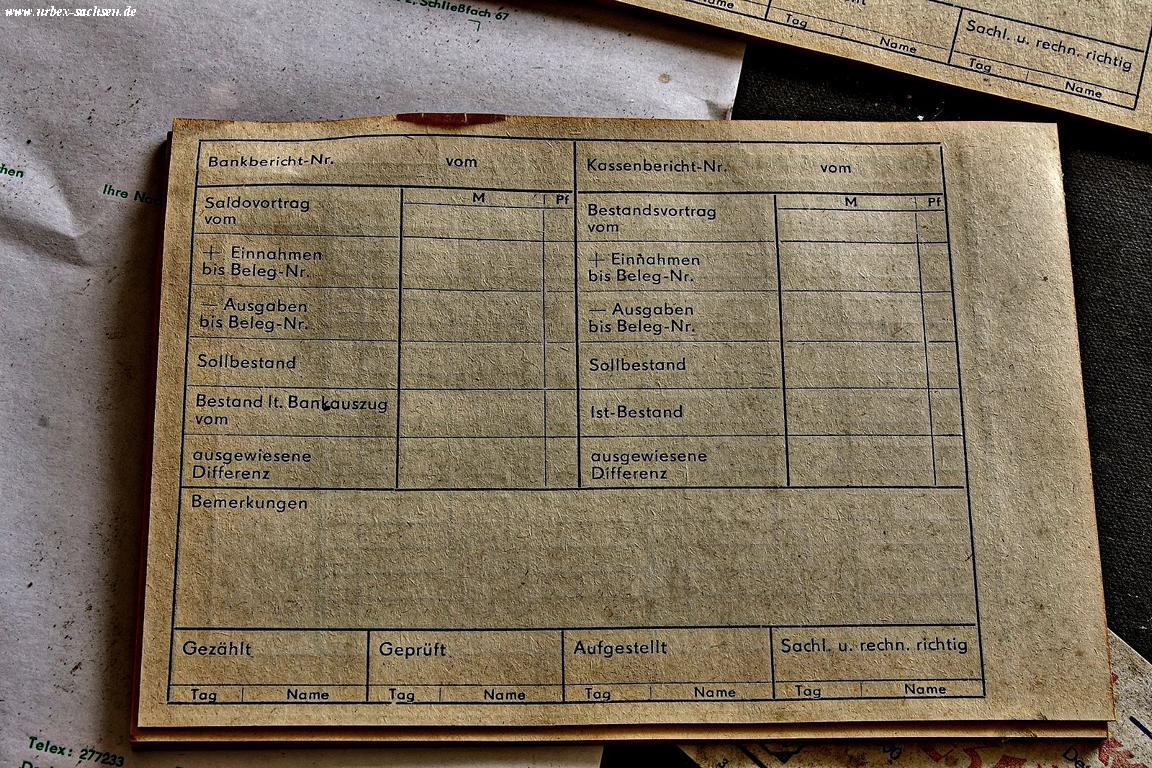 www.urbex-sachsen.de
Schließfach 67
Tag
Name
Sachl. u. rechn. richtig
Tag
Name
Ihre
Bankbericht-Nr. vom
Kassenbericht-Nr. vom
Saldovortrag
vom
M Pf
Bestandsvortrag
vom
M Pf
+ Einnahmen
bis Beleg-Nr.
+ Einnahmen
bis Beleg-Nr.
— Ausgaben
bis Beleg-Nr.
— Ausgaben
bis Beleg-Nr.
Sollbestand
Sollbestand
Bestand lt. Bankauszug
vom
Ist-Bestand
ausgewiesene
Differenz
ausgewiesene
Differenz
Bemerkungen
Gezählt
Geprüft
Aufgestellt
Sachl. u. rechn. richtig
Tag Name
Tag Name
Tag Name
Tag Name
Telex: 277233